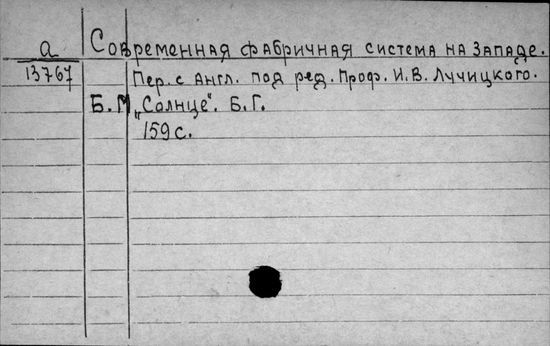 а Современная фабричная система на Западе.
13767 Пер. с англ. под ред. Проф. И.В. Лучицкого.
Б.М „Солнце“. Б.Г.
159 с.